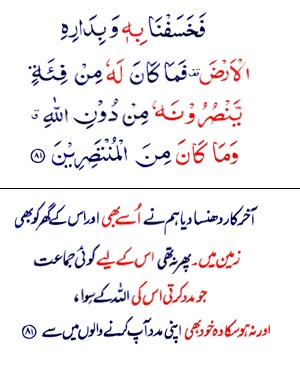 فَخَسَفْنَا بِهٖ وَ بِدَارِهِ
الْاَرْضَ ۫ فَمَا كَانَ لَهٗ مِنْ فِئَةٍ
یَّنْصُرُوْنَهٗ مِنْ دُوْنِ اللّٰهِ ۗ
وَ مَا كَانَ مِنَ الْمُنْتَصِرِیْنَ ﴿۸۱﴾
آخرکار دھنسا دیا ہم نے اُسے بھی اور اس کے گھر کو بھی
زمین میں۔ پھر نہ تھی اس کے لیے کوئی جماعت
جو مدد کرتی اس کی اللہ کے سِوا،
اور نہ ہو سکا دہ خود بھی اپنی مدد آپ کرنے والوں میں سے ﴿۸۱﴾